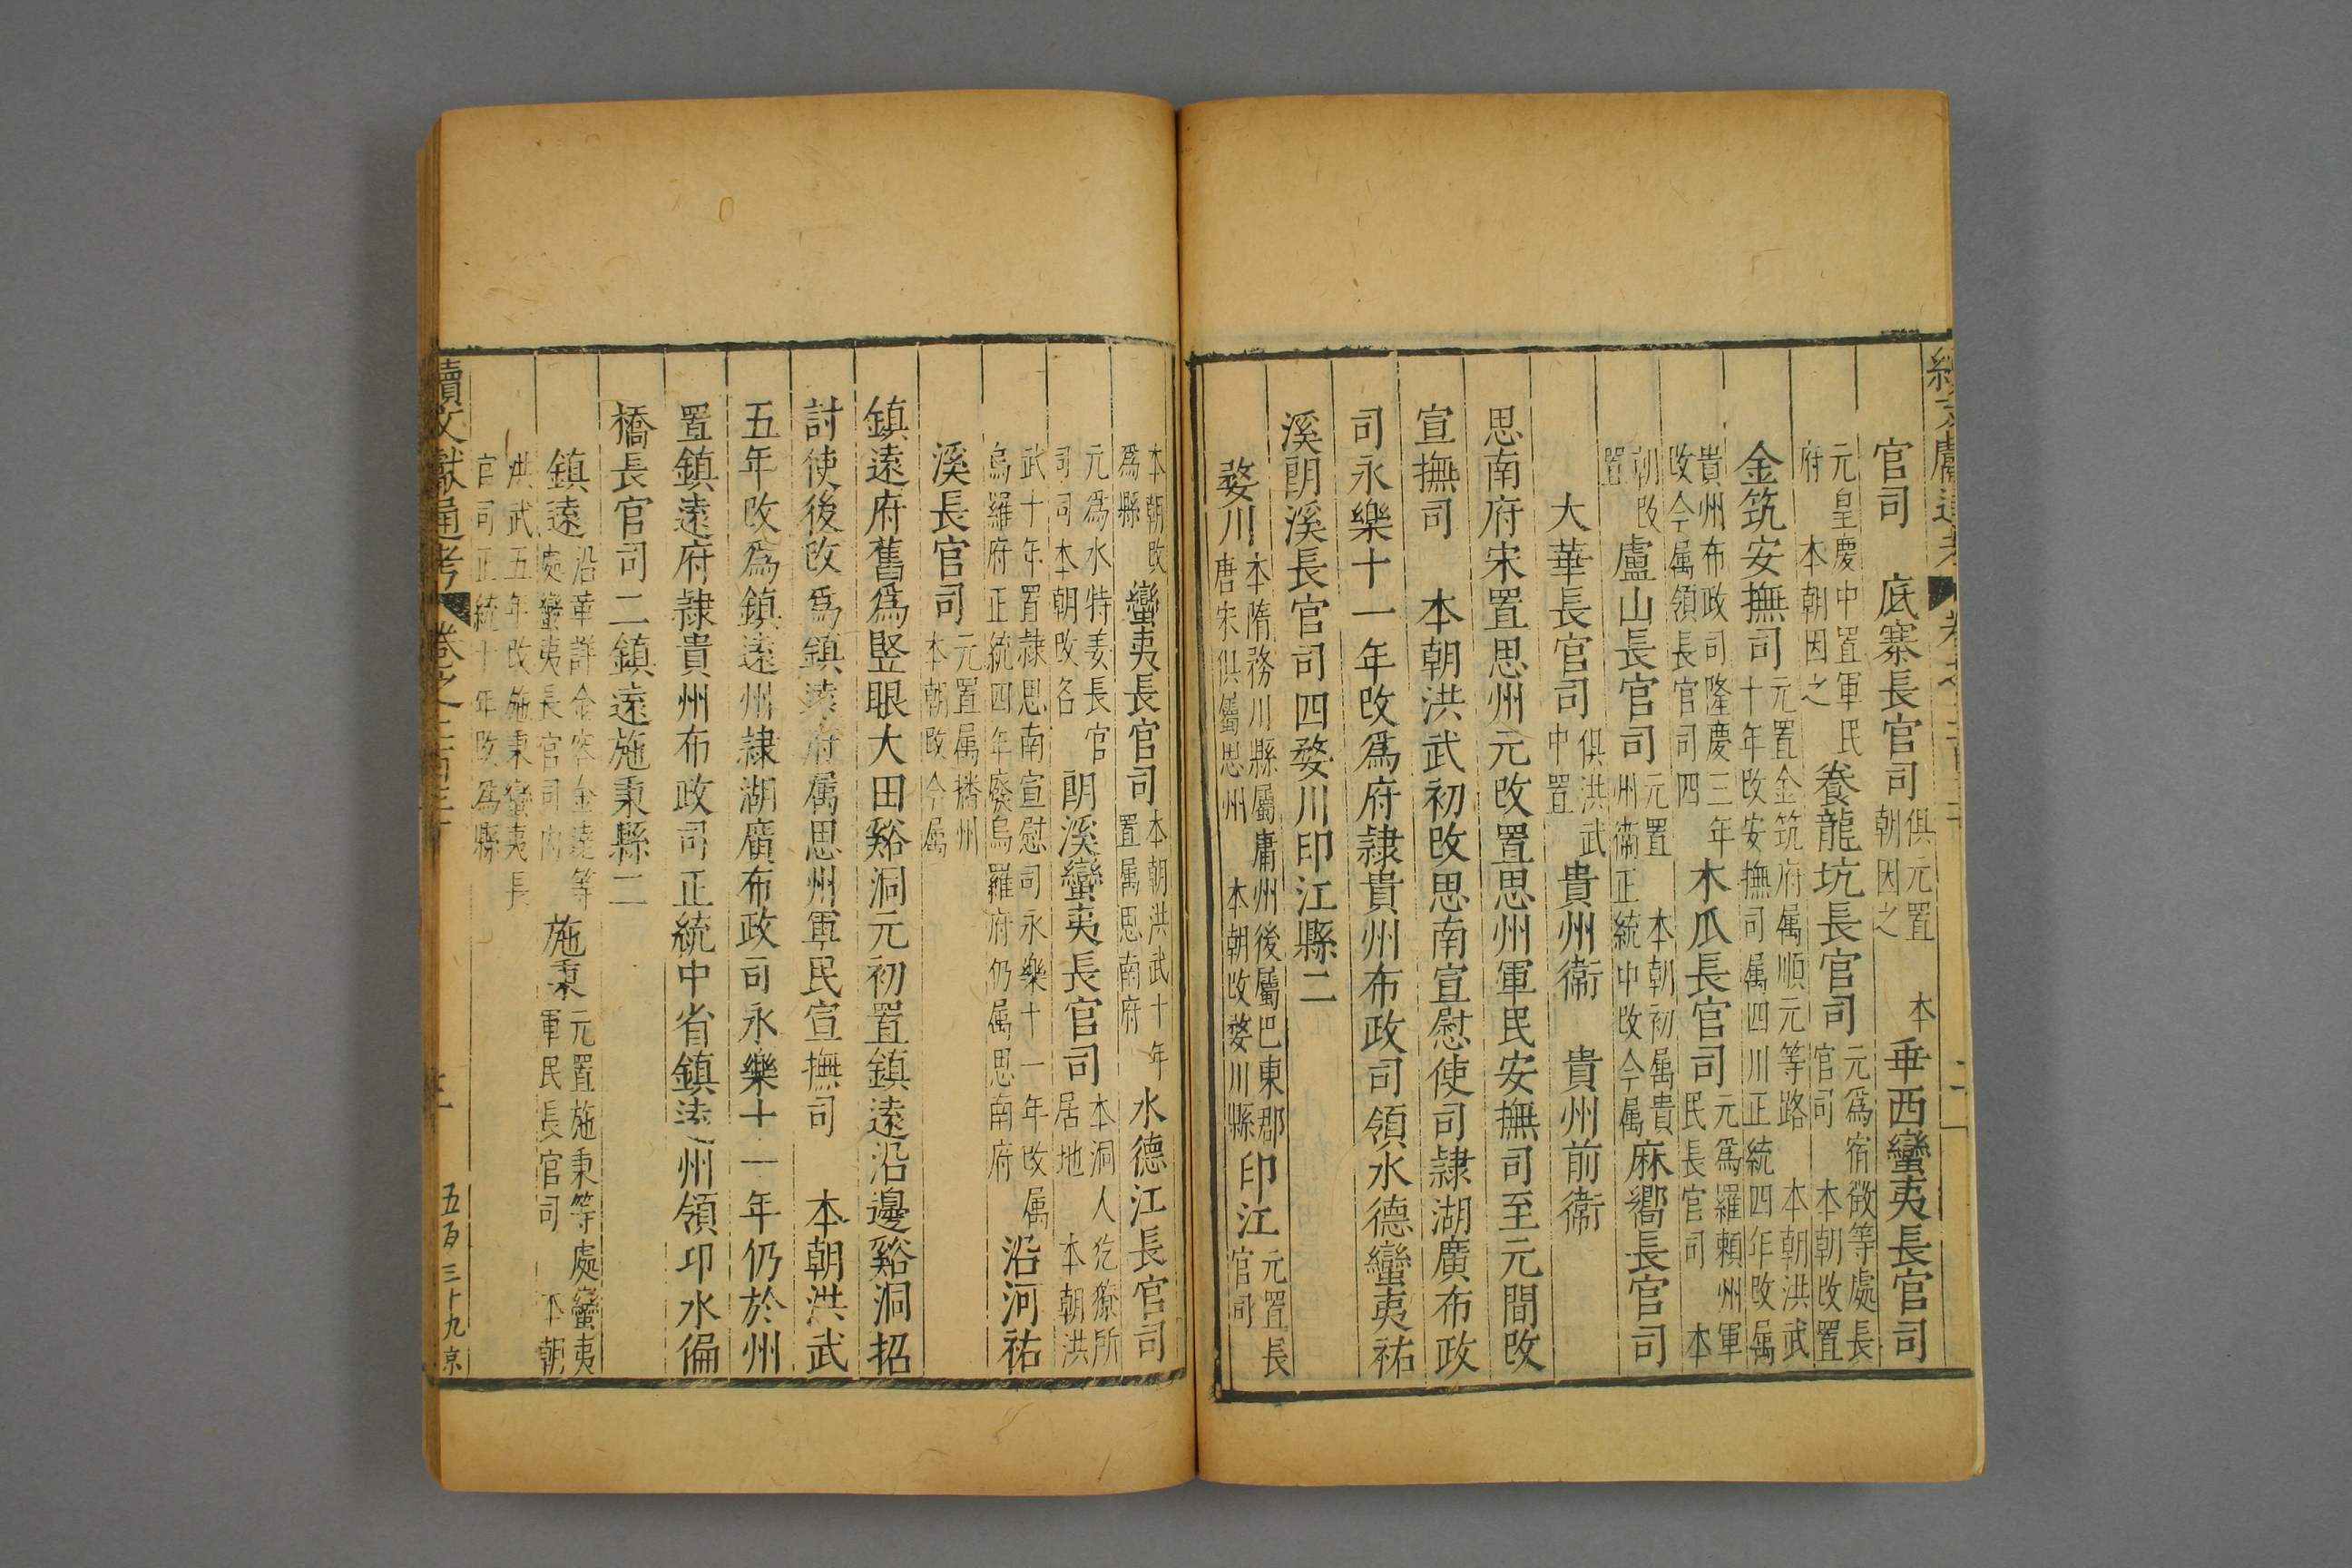 官司　底寨長官司 俱元置本朝因之　乖西蠻夷長官司
元皇慶中置軍民府本朝因之　養龍坑長官司 元為宿徴等處長官司本朝改置
金筑安撫司 元置金筑府属順元等路本朝洪武十年改安撫司属四川正統四年改属
貴州布政司隆慶三年改今属領長官司四　木瓜長官司 元為羅賴州軍民長官司本
朝改置　盧山長官司 元置本朝初属貴州衞正統中改今属　麻嚮長官司
大華長官司 俱洪武中置　貴州衞　貴州前衞
思南府宋置思州元改置思州軍民安撫司至元間改
宣撫司　本朝洪武初改思南宣慰使司隷湖廣布政
司永樂十一年改爲府隷貴州布政司領水德蠻夷祐
溪朗溪長官司四婺川印江縣二
婺川 本隋務川縣屬庸州後屬巴東郡唐宋俱屬思州本朝改婺川縣　印江 元置長官司
本朝改爲縣　蠻夷長官司 本朝洪武十年置属思南府　水德江長官司
元爲水特姜長官司司本朝改名　朗溪蠻夷長官司 本洞人犵獠所居地本朝洪
武十年置隷思南宣慰司永樂十一年改属烏羅府正統四年廢烏羅府仍属思南府　沿河祐
溪長官司 元置属播州本朝改今属
鎮遠府舊爲竪眼大田谿洞元初置鎮遠沿邊谿洞招
討使後改爲鎮遠府属思州軍民宣撫司　本朝洪武
五年改爲鎮遠州隷湖廣布政司永樂十一年仍於州
置鎮遠府隷貴州布政司正統中省鎮遠州領卭水徧
橋長官司二鎮遠施秉縣二
鎮遠 沿革詳金容金達等處蠻夷長官司内　施秉 元置施秉等處蠻夷軍民長官司本朝
洪武五年改施秉蠻夷長官司正統十年改爲縣
續文獻通考　卷之
五百三十九　京